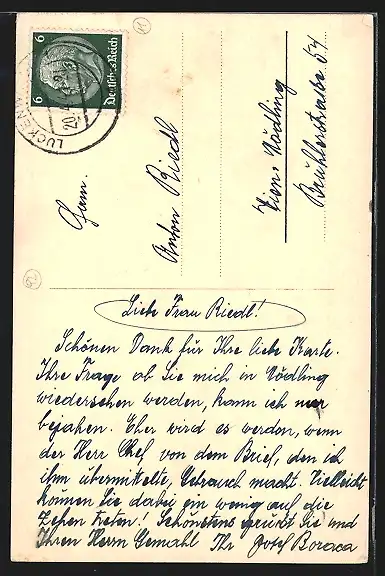 6 6
Deutsches Reich
LUCKEN
20.4
Fam.
Anton Riedl
Wien, Mödling
Brühlerstraße 54
Liebe Frau Riedl!
Schönen Dank für Ihre liebe Karte.
Ihre Frage ob Sie mich in Mödling
wiedersehen werden, kann ich nur
bejahen. Eher wird es werden, wenn
der Herr Chef von dem Brief, den ich
ihm übermittelte, Gebrauch macht. Vielleicht
können Sie dabei ein wenig auf die
Zehen treten! Schönstens grüßt Sie und
Ihren Herrn Gemahl Ihr Josef